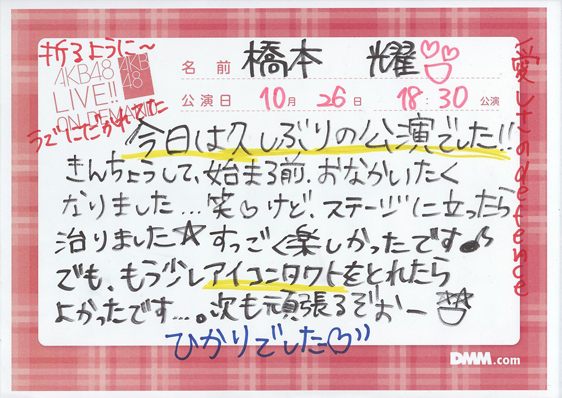 折るように〜
AKB48
LIVE!!
ON DEMAND
AKB
48
うでにだかれました
名前 橋本 耀
公演日 10月 26日 18:30 公演
愛しさのdefence
今日は久しぶりの公演でした!!
きんちょうして、始まる前、おなかいたく
なりました...笑♡けど、ステージに立ったら
治りました☆すっごく楽しかったです♪
でも、もう少しアイコンタクトをとれたら
よかったです...。次も頑張るぞぉー
ひかりでした♡
DMM.com